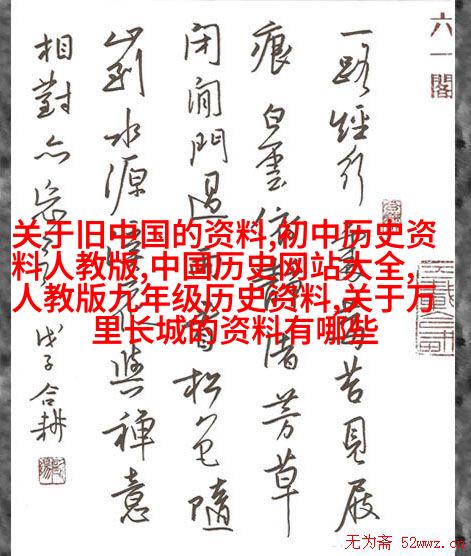 六一閣
一路經行處莓苔見屐
痕白雲依靜渚芳草
閉閒門過雨看松色隨
山到水源溪花與禪意
相對亦忘言
戊子合耕
关于旧中国的资料,初中历史资
料人教版,中国历史网站大全,
人教版九年级历史资料,关于万
里长城的资料有哪些
无为斋 52wwz.cn